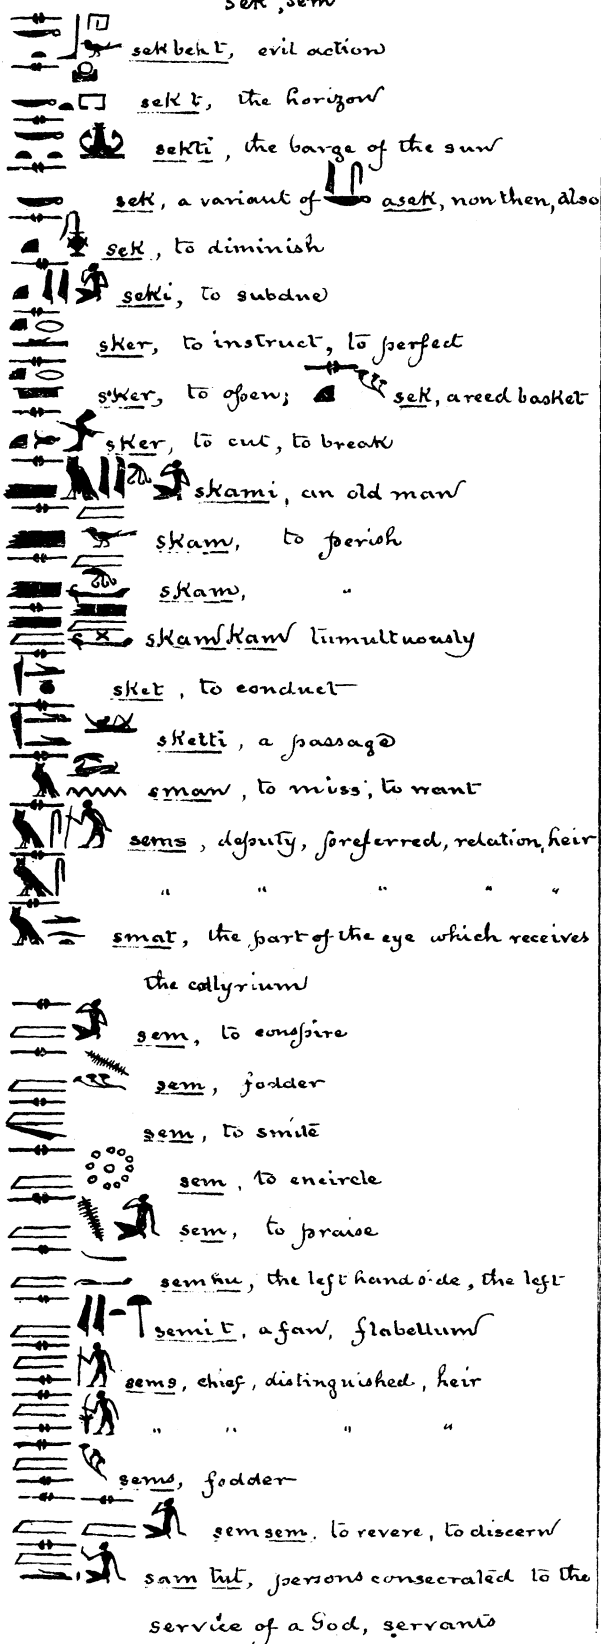 sek, sem
sekbeht, evil action
sekt, the horizon
sekti, the barge of the sun
sek, a variant of asek, non then, also
sek, to diminish
seki, to subdue
sker, to instruct, to perfect
sker, to open; sek, a reed basket
sker, to cut, to break
skami, an old man
skam, to perish
skam, "
skamkam tumultuously
sket, to conduct
sketti, a passage
sman, to miss, to want
sems, deputy, preferred, relation, heir
" " " " "
smat, the part of the eye which receives
the collyrium
sem, to conspire
sem, fodder
sem, to smite
sem, to encircle
sem, to praise
semhu, the left hand side, the left
semit, a fan, flabellum
sems, chief, distinguished, heir
" " " "
sems, fodder
semsem. to revere, to discern
sam tut, persons consecrated to the
service of a God, servants